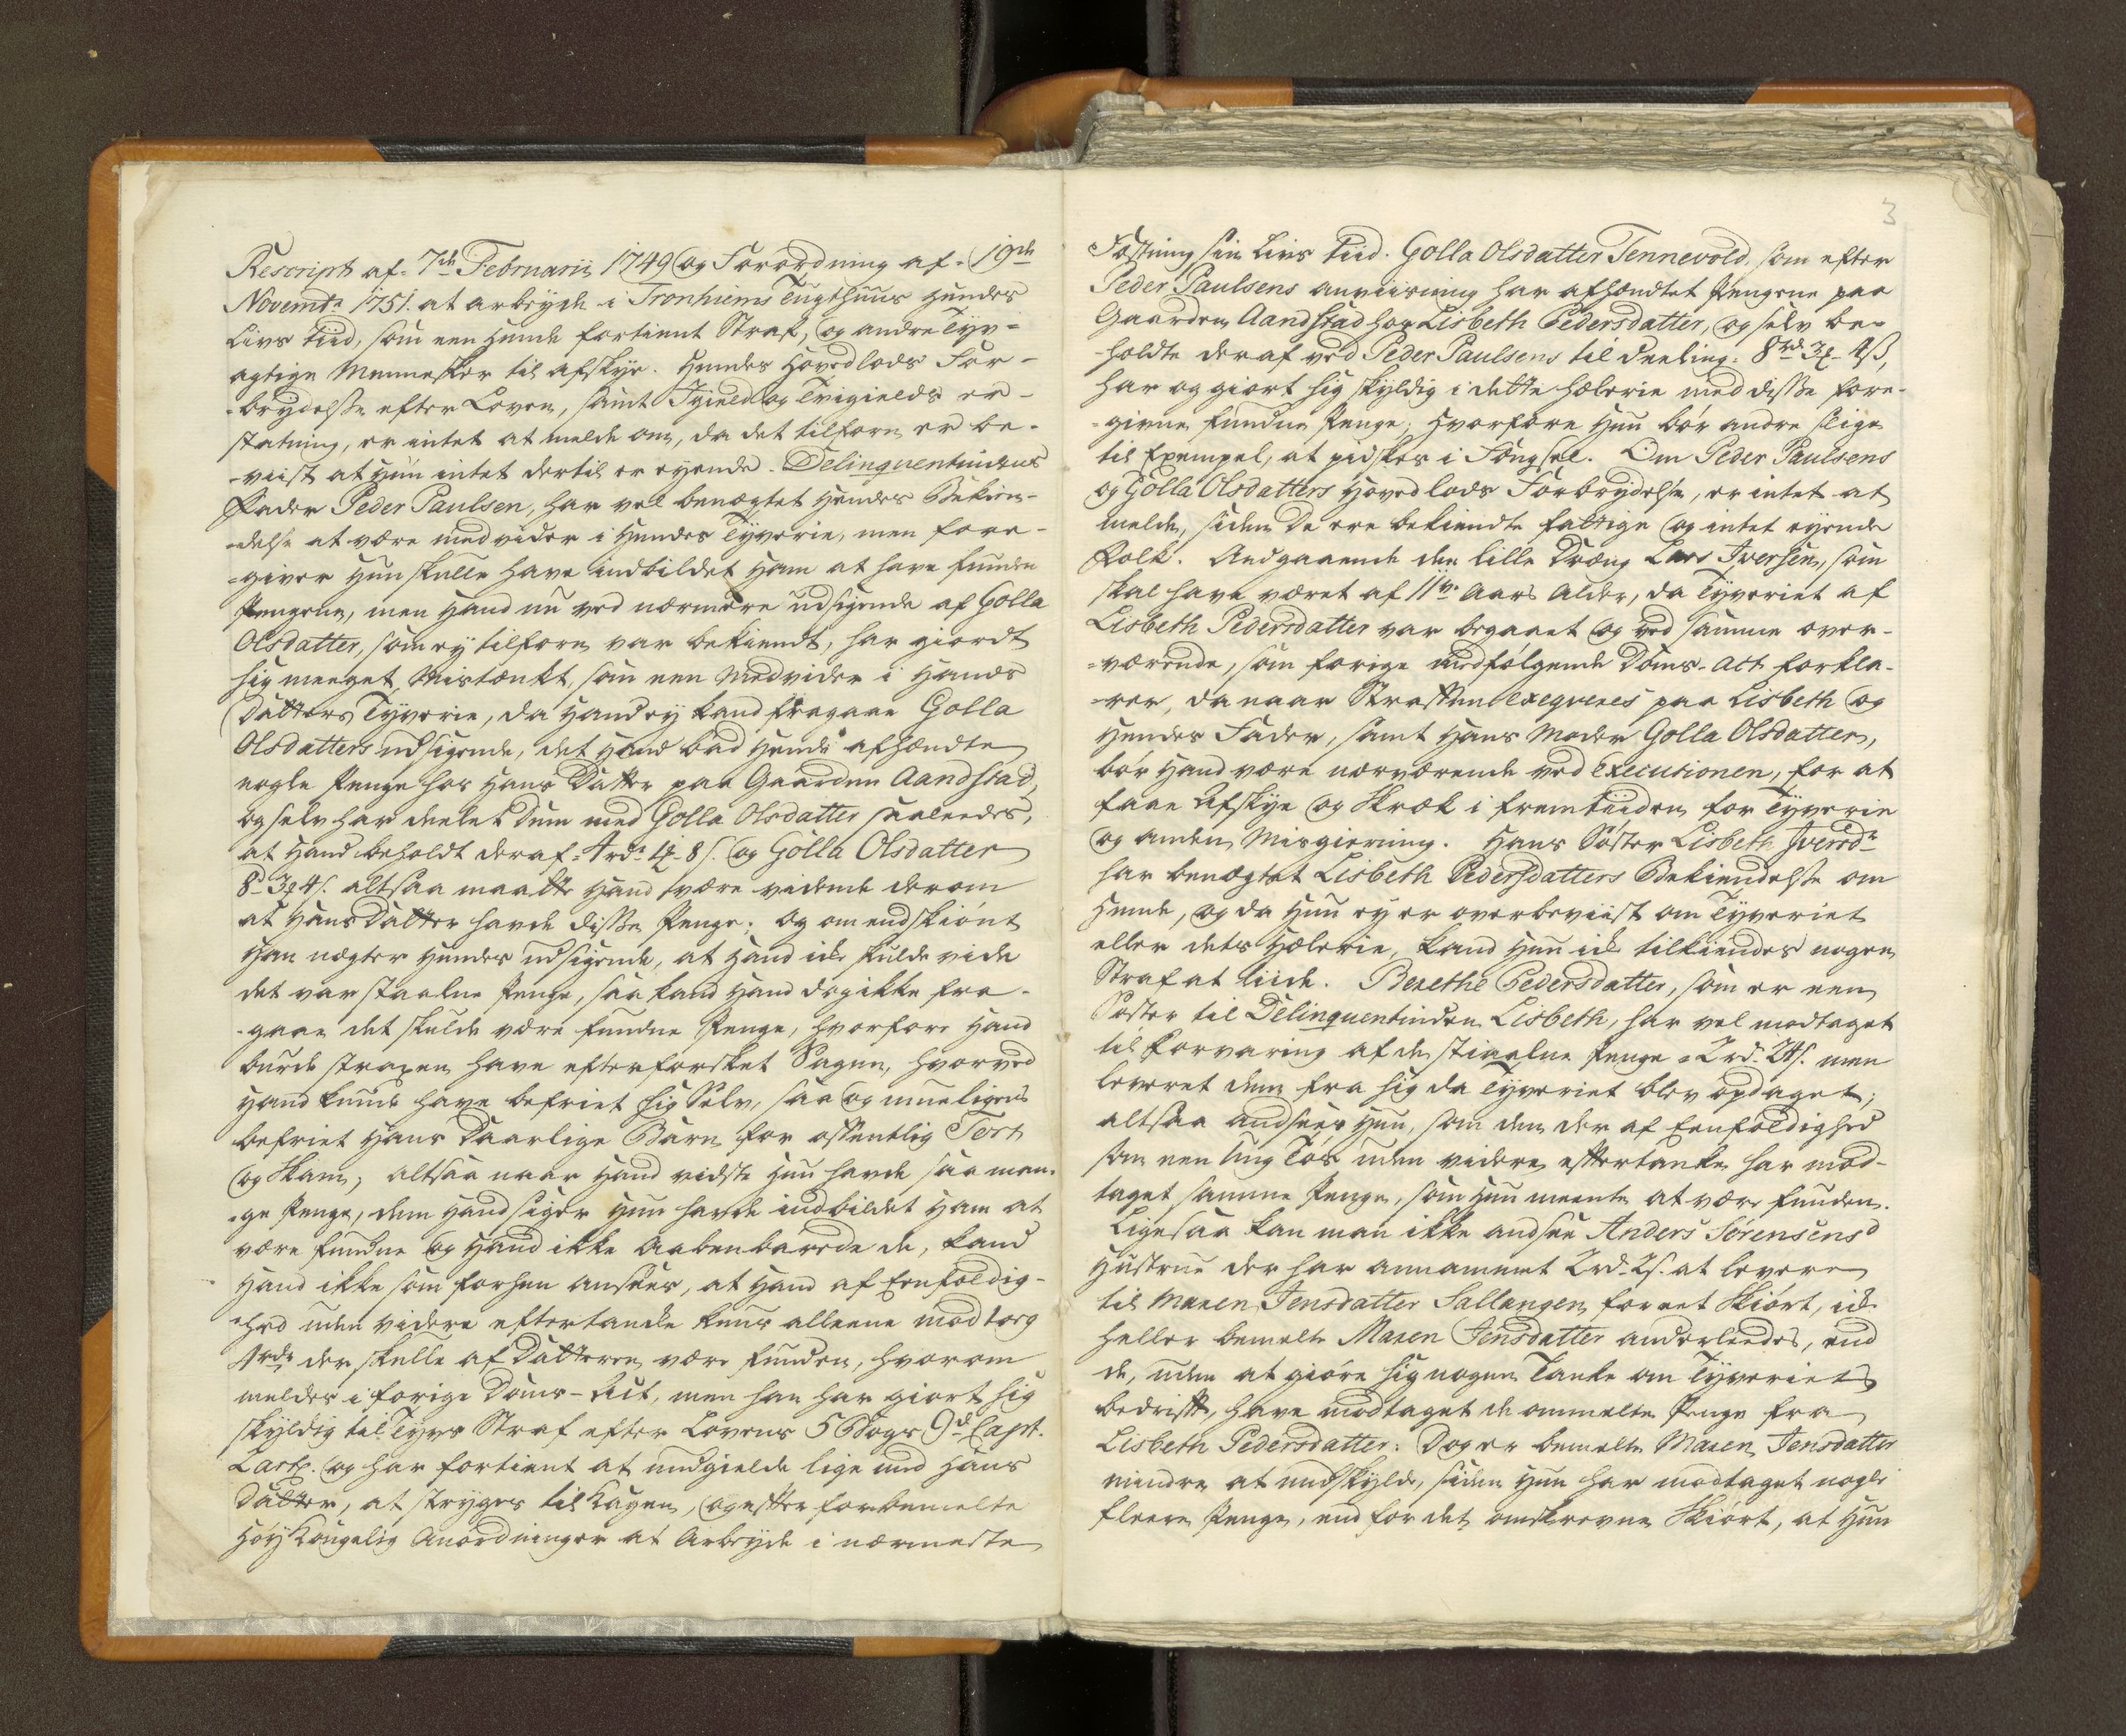 Rescript af 7de Februarii 1749 og Forordning af 19de
Novembr 1751. at arbeyde i Tronhiems Tugthuus hendes
Livs Tiid, som een hende fortient Straf, og andre Tyv-
agtige Mennesker til afskye. Hendes Hovedlods For-
-brydelse efter Loven, samt Igield og Tvigields er-
statning, er intet at melde om, da det tilforn er be-
-viist at hun intet dertil er eyende. Delinquentindens
Fader Peder Paulsen, har vel benægtet hendes Bekien-
-delse at være medvider i hendes Tyverie, men fore-
-giver hun skulle have indbildet ham at have funden
Pengene, men hand nu ved nærmere udsigende af Golla
Olsdatter, som ey tilforn var bekiendt, har giordt
sig meeget Mistænkt, som een Medvider i Hands
Datters Tyverie, da hand ey kand fragaae Golla
Olsdatters udsigende, det hand bad hende afhændte
nogle Penge hos hans Datter paa Gaarden Aandstad,
og selv har deelet dem med Golla Olsdatter saaleedes,
at hand beholdt deraf 4rdr 4 8s. og Golla Olsdatter
8d 3 4s. altsaa maatte hand være vidende derom
at hans Datter havde disse Penge; og om endskiønt
han nægter hendes udsigende, at hand icke skulde vide
det var staalne Penge, saa kand hand dog ikke fra-
-gaae det skulde være fundne Penge, hvorfore hand
burde straxen have efterforsket Sagen, hvorved
hand kunde have befriet sig Selv, saa og mueligens
befriet hans Daarlige Barn for offentlig Tort
og Skam, altsaa naar hand vidste hun havde saa man-
-ge Penge, dem hand siger hun havde indbildet ham at
være fundne og hand ikke Aabenbarede de, kand
hand ikke som forhen ansees, at hand af Eenfoldig-
-hed uden videre eftertanke kuns alleene modtoeg
4rdr der skulle af Datteren være funden, hvorom
meldes i forige Doms-Act, men han har giort sig
skyldig til Tyvs Straf efter Lovens 5 Bogs 9de Capt.
 og har fortient at undgielde lige med hans
Datter, at stryges til Kagen, og efter forbemelte
Høy Kongelig Anordninger at Arbeyde i nærmeste
3
Fæstning sin Livs tiid. Golla Olsdatter Tennevold, som efter
Peder Paulsens anviisning har afhændtet Pengene paa
Gaarden Aandstad hos Lisbeth Pedersdatter, og selv be-
-holdte deraf ved Peder Paulsens til deeling 8rd 3 4ß,
har og giort sig skyldig i dette hælerie med disse fore-
-givne fundne Penge; hvorfore hun bør andre slige
til Exempel, at pidskes i Fængsel. Om Peder Paulsens
og Golla Olsdatters hovedlods Forbrydelse, er intet at
melde, siden de ere bekiendte fattige og intet eyende
Folk. Andgaaende den lille Dræng Lars Iversen, som
skal have været af 11 Aars Alder, da Tyveriet af
Lisbeth Pedersdatter var begaaet og ved samme over-
-værende, som forige medfølgende Doms-Act forkla-
-rer, da naar Straffen exeqveres paa Lisbeth og
hendes Fader, samt hans Moder Golla Olsdatter,
bør hand være nærværende ved Executionen, for at
faae Afskye og Skræk i fremtiiden for Tyverie
og anden Misgierning. Hans Søster Lisbeth Iversdr
har benægtet Lisbeth Pedersdatters Bekiendelse om
hende, og da hun ey er overbeviist om Tyveriet
eller dets hælerie, kand hun icke tilkiendes nogen
Straf at liide. Berethe Pedersdatter, som er een
Søster til Delinquentinden Lisbeth, har vel modtaget
til forvaring af de stiaalne Penge 2rd. 24s. men
leveret dem fra sig da Tyveriet blev opdaget;
altsaa andsees hun, som den der af Eenfoldighed
som een Ung Tøs uden videre eftertanke har mod-
taget samme Penge, som hun meente at være funden.
Ligesaa kan man ikke andsee Anders Sørensens
Hustrue der har annammet 2rd. 2s. at levere
til Maren Jensdatter Sallangen for eet Skiørt, icke
heller bemelte Maren Jensdatter anderleedes, end
de, uden at giøre sig nogen Tanke om Tyveriets
bedrift, have modtaget de ommelte Penge fra
Lisbeth Pedersdatter: Dog er bemelte Maren Jensdatter
mindre at undskylde, siden hun har modtaget nogle
fleere Penge, end for det omskrevne Skiørt, at hun